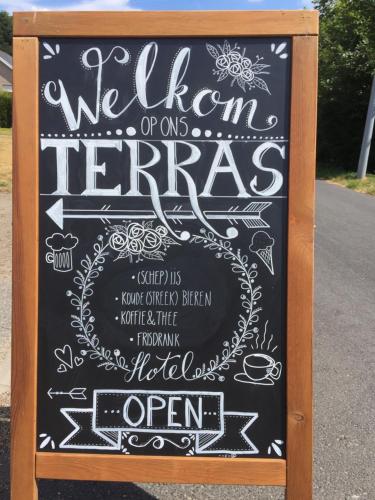 Welkom
OP ONS
TERRAS
• (SCHEP) IJS
• KOUDE (STREEK) BIEREN
• KOFFIE & THEE
• FRISDRANK
Hotel
OPEN